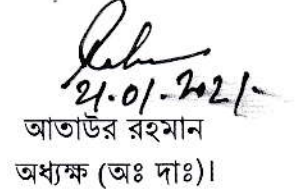 21.01.2021
আতাউর রহমান
অধ্যক্ষ (অঃ দাঃ)।